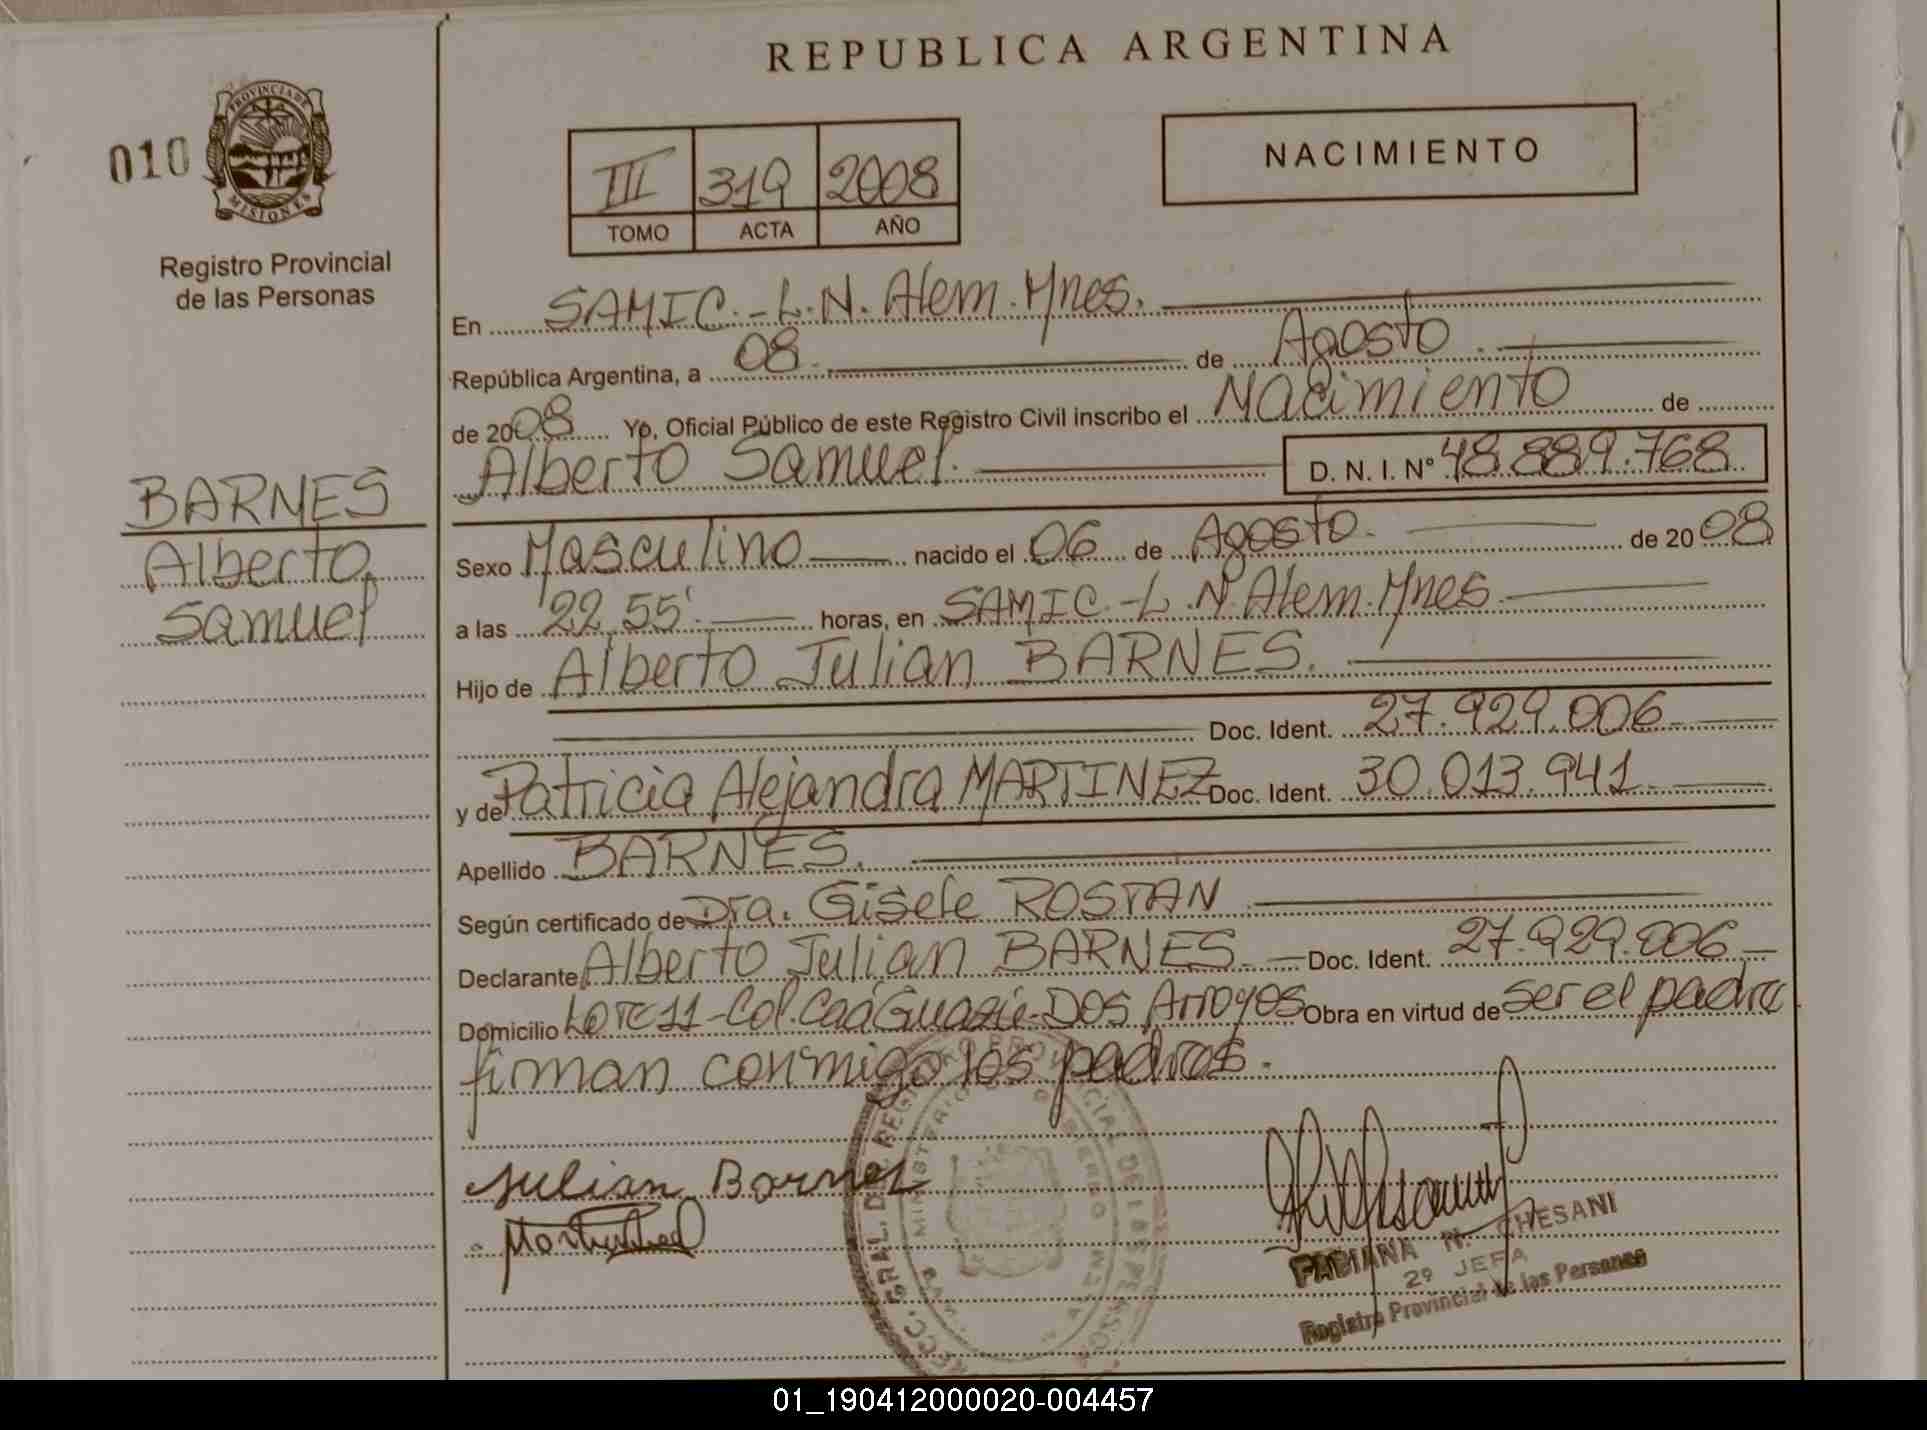 REPUBLICA ARGENTINA
010
PROVINCIA DE
MISIONES
Registro Provincial
de las Personas
III 319 2008
TOMO ACTA AÑO
NACIMIENTO
En SAMIC.-L.N. Alem. Mnes.
República Argentina, a 08 de Agosto
de 2008 Yo, Oficial Público de este Registro Civil inscribo el Nacimiento de
Alberto Samuel. D. N. I. N° 48.889.768
BARNES
Alberto
Samuel
Sexo Masculino nacido el 06 de Agosto. de 2008
a las 22,55'. horas, en SAMIC.-L.N. Alem. Mnes.
Hijo de Alberto Julian BARNES.
Doc. Ident. 27.929.006
y de Patricia Alejandra MARTINEZ Doc. Ident. 30.013.941.
Apellido BARNES.
Según certificado de Dra. Gisele ROSTAN
Declarante Alberto Julian BARNES. Doc. Ident. 27.929.006
Domicilio LOTE 11-Col. Caá Guazú-DOS Arroyos Obra en virtud de ser el padre
firman conmigo los padres.
Julian Barnes
FABIANA N. CHESANI
2º JEFA
Registro Provincial de las Personas
01_190412000020-004457